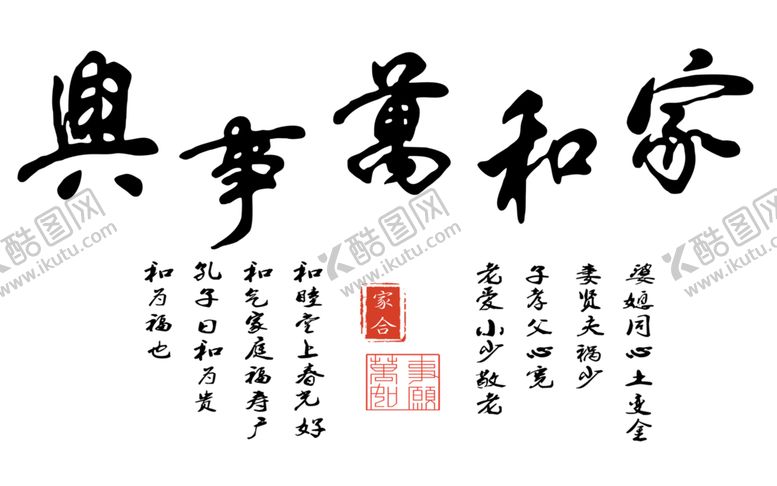 家和萬事興
婆媳同心土变金
妻贤夫祸少
子孝父心宽
老爱小少敬老
家合
萬事
如願
和睦堂上春光好
和气家庭福寿广
孔子曰和为贵
和为福也
酷图网
www.ikutu.com
酷图网
www.ikutu.com
酷图网
www.ikutu.com